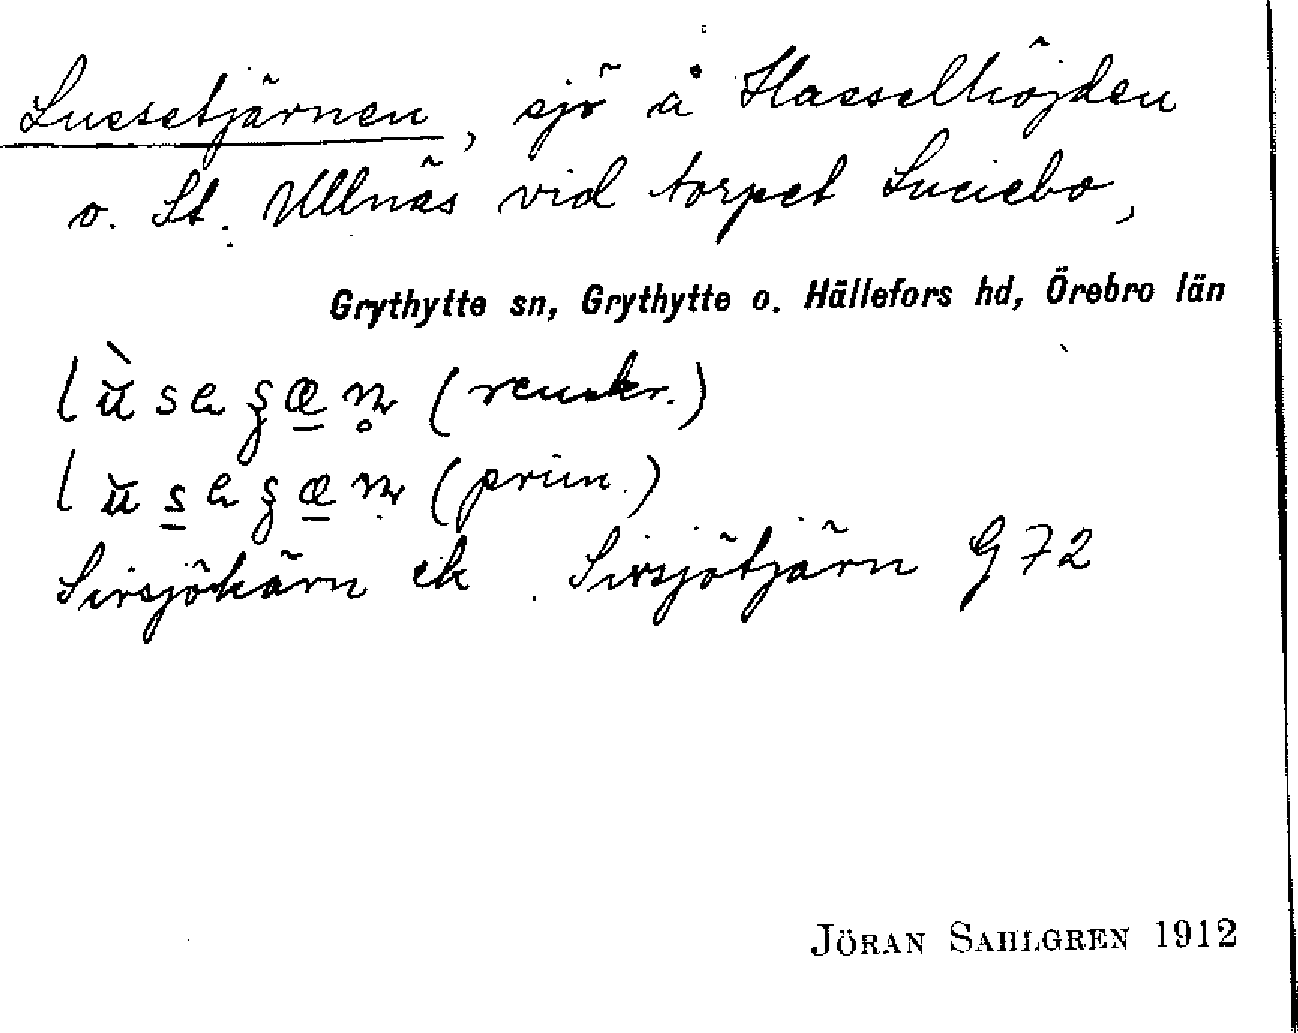 Lussetjärnen, sjö å Hasselhöjden
o. St. Ullnäs vid torpet Luciebo,
Grythytte sn, Grythytte o. Hällefors hd, Örebro län
(prim.)
Sirsjötjärn ek. Sirsjötjärn G 72
JÖRAN SAHLGREN 1912